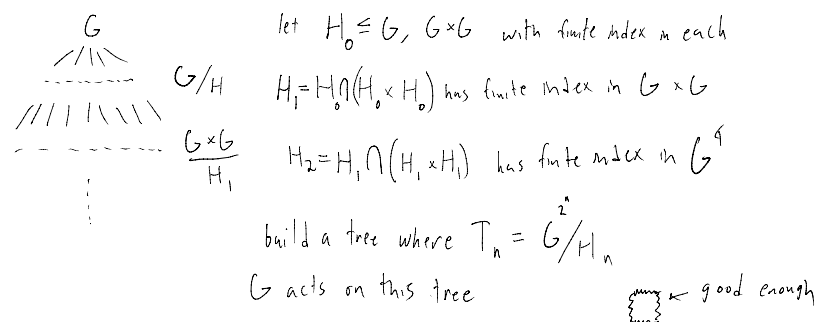 G
let H₀ ≤ G, G×G with finite index in each
G/H
H₁=H₀∩(H₀×H₀) has finite index in G×G
G×G/H₁
H₂=H₁∩(H₁×H₁) has finite index in G⁴
build a tree where Tₙ = G^{2ⁿ}/Hₙ
G acts on this tree
← good enough